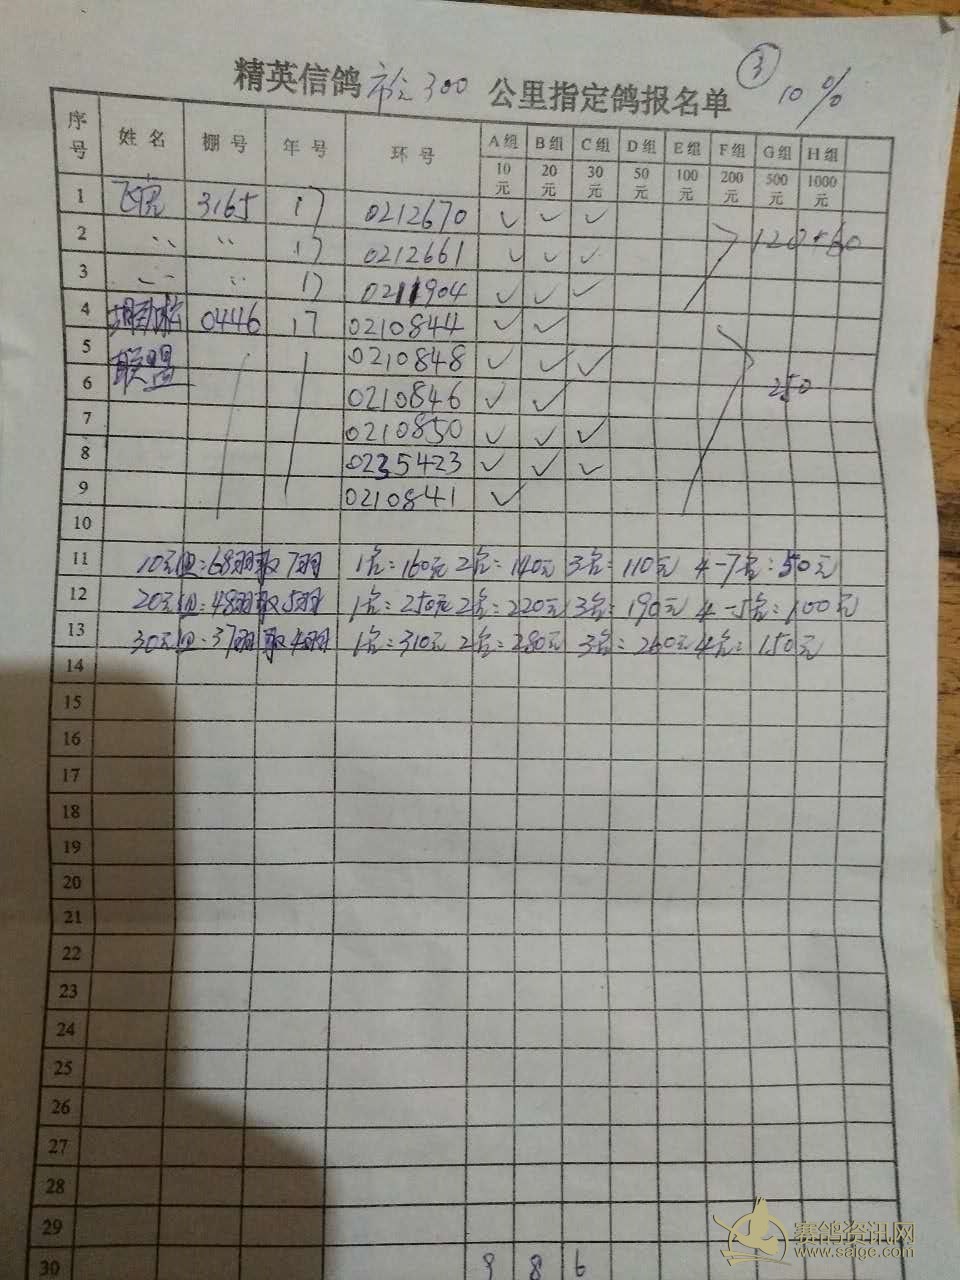 ③
10%
精英信鸽 300 公里指定鸽报名单
序号 姓名 棚号 年号 环号 A组 B组 C组 D组 E组 F组 G组 H组
10元 20元 30元 50元 100元 200元 500元 1000元
1 3165 17 0212670 ✓ ✓ ✓
2 〃 〃 17 0212661 ✓ ✓ ✓ 120+60
3 〃 〃 17 0211904 ✓ ✓ ✓
4 0446 17 0210844 ✓ ✓
5 联盟 0210848 ✓ ✓ ✓
6 0210846 ✓ ✓ 250
7 0210850 ✓ ✓ ✓
8 0235423 ✓ ✓ ✓
9 0210841 ✓
10
11 10元组:68羽取7羽 1名:160元 2名:140元 3名:110元 4-7名:50元
12 20元组:48羽取5羽 1名:250元 2名:220元 3名:190元 4-5名:100元
13 30元组:37羽取4羽 1名:310元 2名:280元 3名:260元 4名:150元
14
15
16
17
18
19
20
21
22
23
24
25
26
27
28
29
30 9 8 6
赛鸽资讯网
www.saigc.com